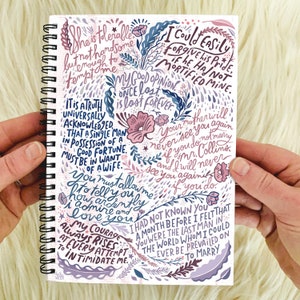 She is tolerable
but
not handsome
enough to
tempt me
I could easily
forgive his pride
if he had not
mortified mine.
My good opinion
once lost
is lost forever
It is a truth
universally
acknowledged
that a single man
in possession of
a good fortune
must be in want
of a wife.
Your mother will
never see you again
if you do not
marry Mr. Collins
and I will never
see you again if
you do.
You must allow me
to tell you how
ardently I
admire and
love you
My courage
always rises
at every attempt
to intimidate me.
I had not known you
a month before I felt that
you were the last man in
the world whom I could
ever be prevailed on
to marry